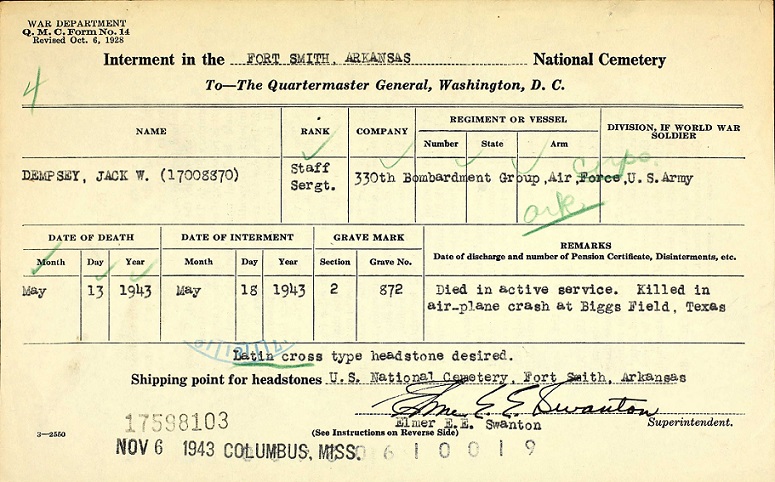 WAR DEPARTMENT
Q. M. C. Form No. 14
Revised Oct. 6, 1928
Interment in the FORT SMITH, ARKANSAS National Cemetery
To—The Quartermaster General, Washington, D. C.
4
NAME RANK COMPANY REGIMENT OR VESSEL DIVISION, IF WORLD WAR SOLDIER
Number State Arm
DEMPSEY, JACK W. (17008870) Staff Sergt. 330th Bombardment Group, Air Force, U.S. Army
Corps.
Ark.
DATE OF DEATH DATE OF INTERMENT GRAVE MARK REMARKS
Month Day Year Month Day Year Section Grave No. Date of discharge and number of Pension Certificate, Disinterments, etc.
May 13 1943 May 18 1943 2 872 Died in active service. Killed in
air-plane crash at Biggs Field, Texas
Latin cross type headstone desired.
Shipping point for headstones U.S. National Cemetery, Fort Smith, Arkansas
Elmer E. E. Swanton
Elmer E.E. Swanton Superintendent.
17598103
3—2550 (See Instructions on Reverse Side)
NOV 6 1943 COLUMBUS, MISS. 0 6 1 0 0 1 9